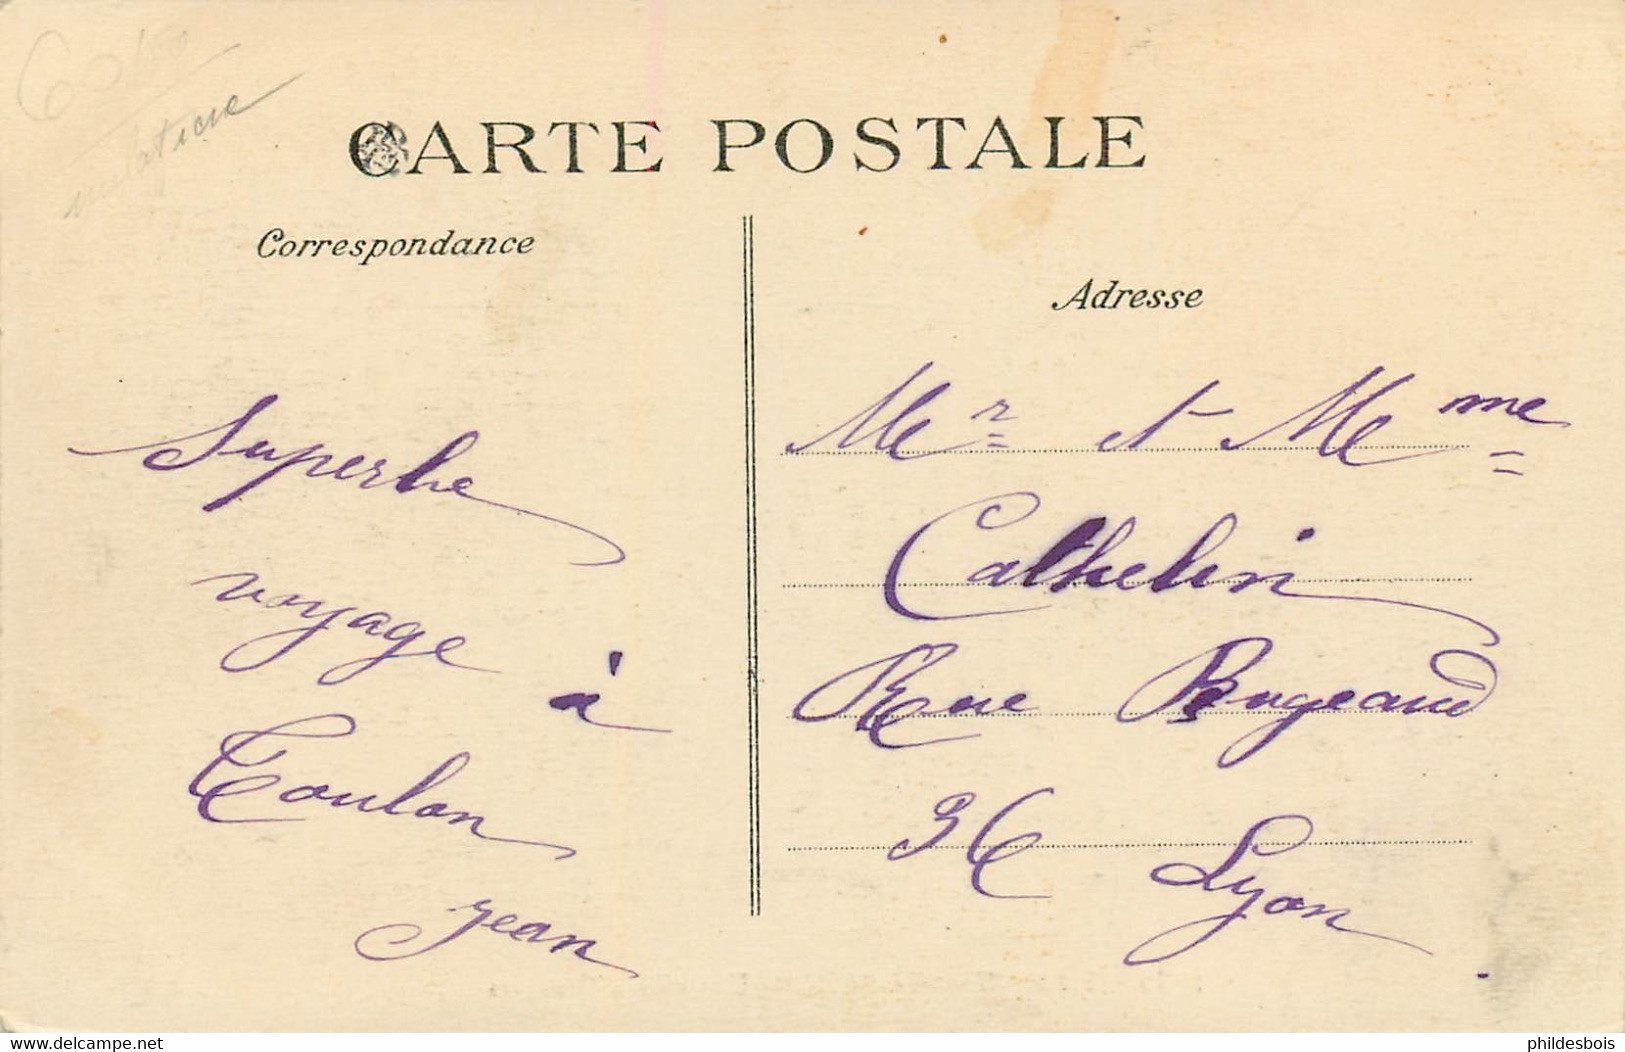 mulatiere
CARTE POSTALE
Correspondance
Superbe
voyage
à
Toulon
Jean
Adresse
Mr et Mme
Cathelin
Rue Bugeaud
36 Lyon.
www.delcampe.net
phildesbois